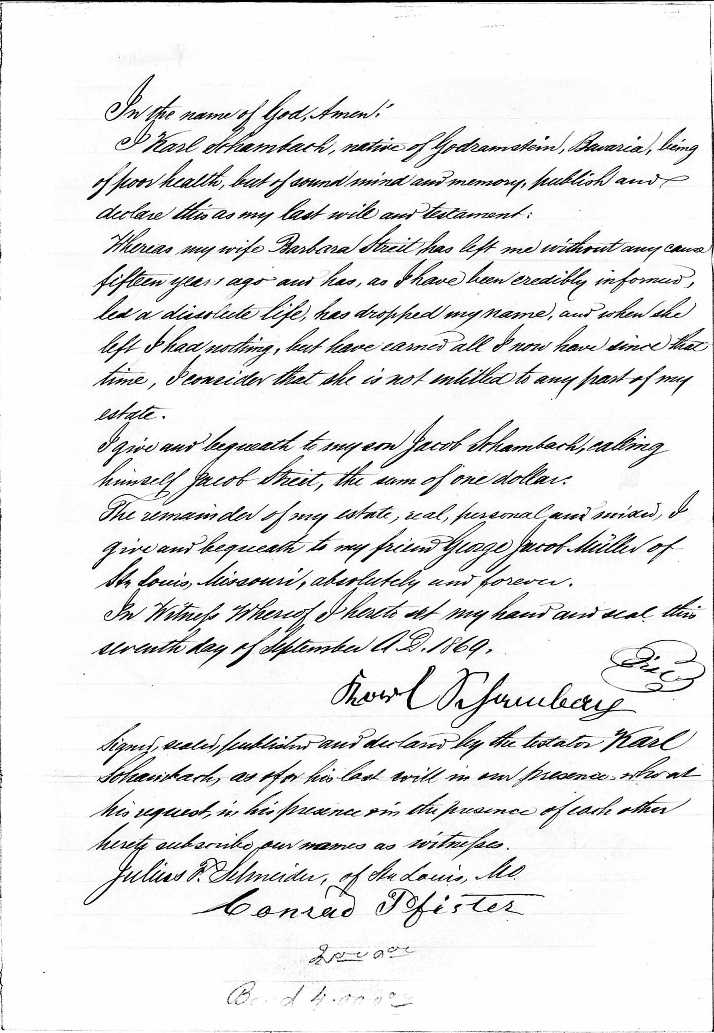 In the name of God, Amen!
I Karl Schambach, native of Godramstein, Bavaria, being
of poor health, but of sound mind and memory, publish and
declare this as my last will and testament:
Whereas my wife Barbara Streit has left me without any cause
fifteen years ago and has, as I have been credibly informed,
led a dissolute life, has dropped my name, and when she
left I had nothing, but have earned all I now have since that
time, I consider that she is not entitled to any part of my
estate.
I give and bequeath to my son Jacob Schambach, calling
himself Jacob Streit, the sum of one dollar.
The remainder of my estate, real, personal and mixed, I
give and bequeath to my friend George Jacob Müller of
St. Louis, Missouri, absolutely and forever.
In Witness Whereof I hereto set my hand and seal this
seventh day of September A.D. 1869.
Karl Schambach
Signed, sealed, published and declared by the testator Karl
Schambach, as & for his last will in our presence who at
his request, in his presence & in the presence of each other
hereto subscribe our names as witnesses.
Julius F. Schneider, of St. Louis, Mo.
Conrad Pfister